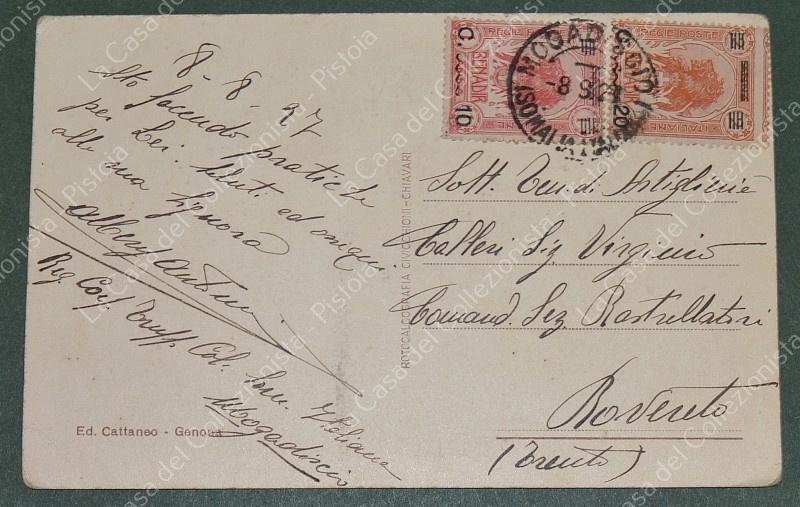 8-8-27
Sto facendo pratiche
per Lei. Saluti ed ossequi
alla sua Signora
Reg. Corp. Trupp. Col. Som. Italiana
Mogadiscio
Ed. Cattaneo - Genova
ROTOCALCOGRAFIA CIVICCHIONI - CHIAVARI
REGIE POSTE
BENADIR
10
REGIE POSTE
ITALIANE
20
MOGADISCIO
(SOMALIA ITAL.)
Sott. Ten. di Artiglieria
Talleri Sig Virginio
Comand. Sez. Rastrellatori
Rovereto
(Trento)
La Casa del Collezionista - Pistoia